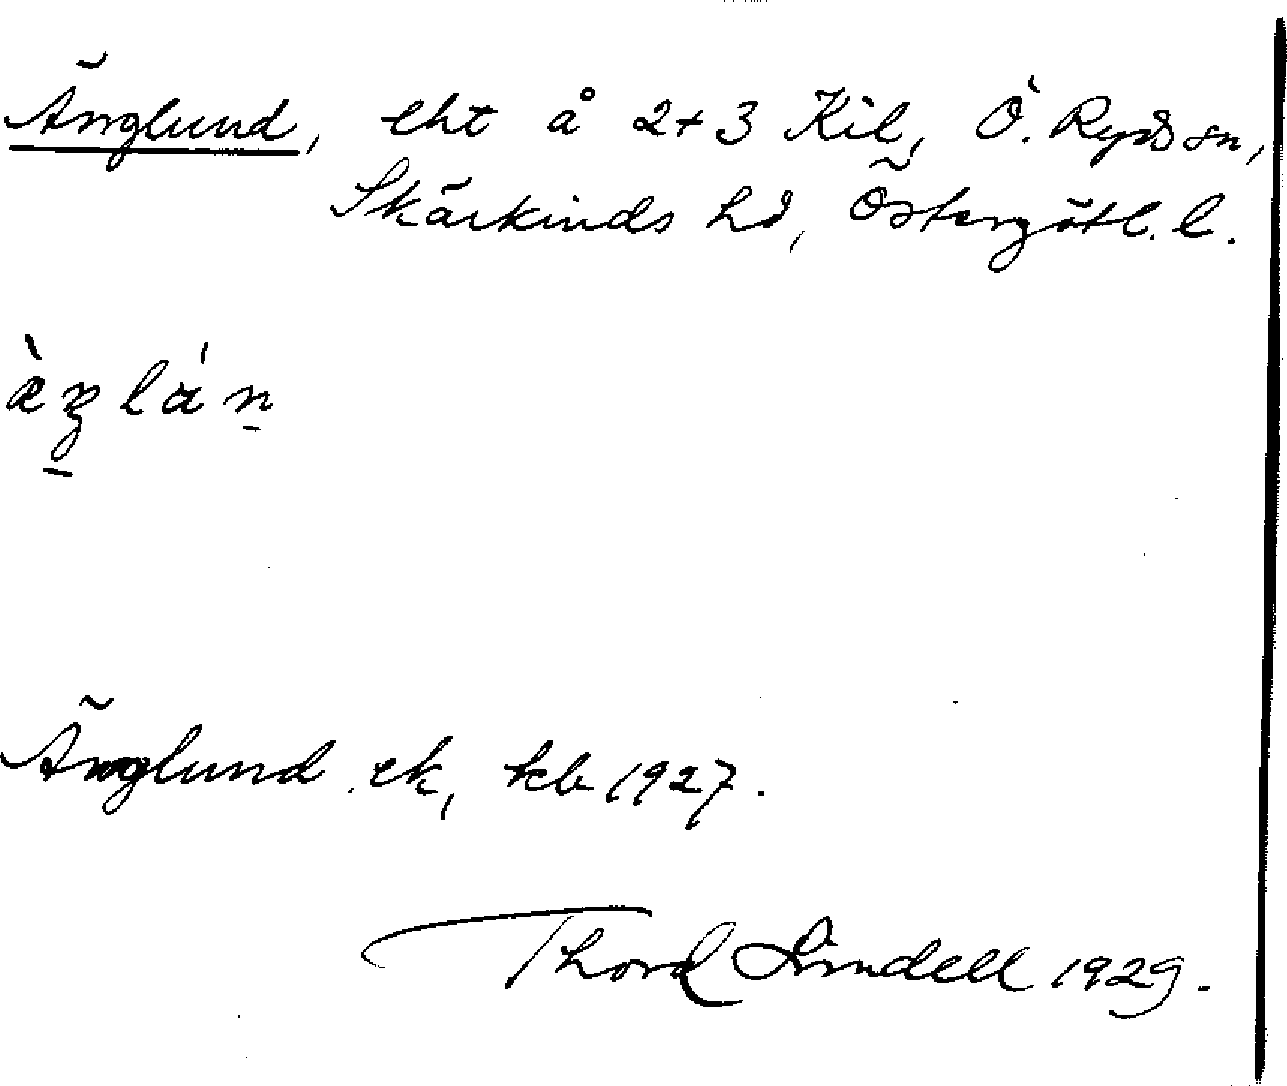 Änglund, lht å 2+3 Kil, Ö. Ryds sn,
Skärkinds hd, Östergötl. l.
Änglund ek, kb 1927.
Thord Lindell 1929.